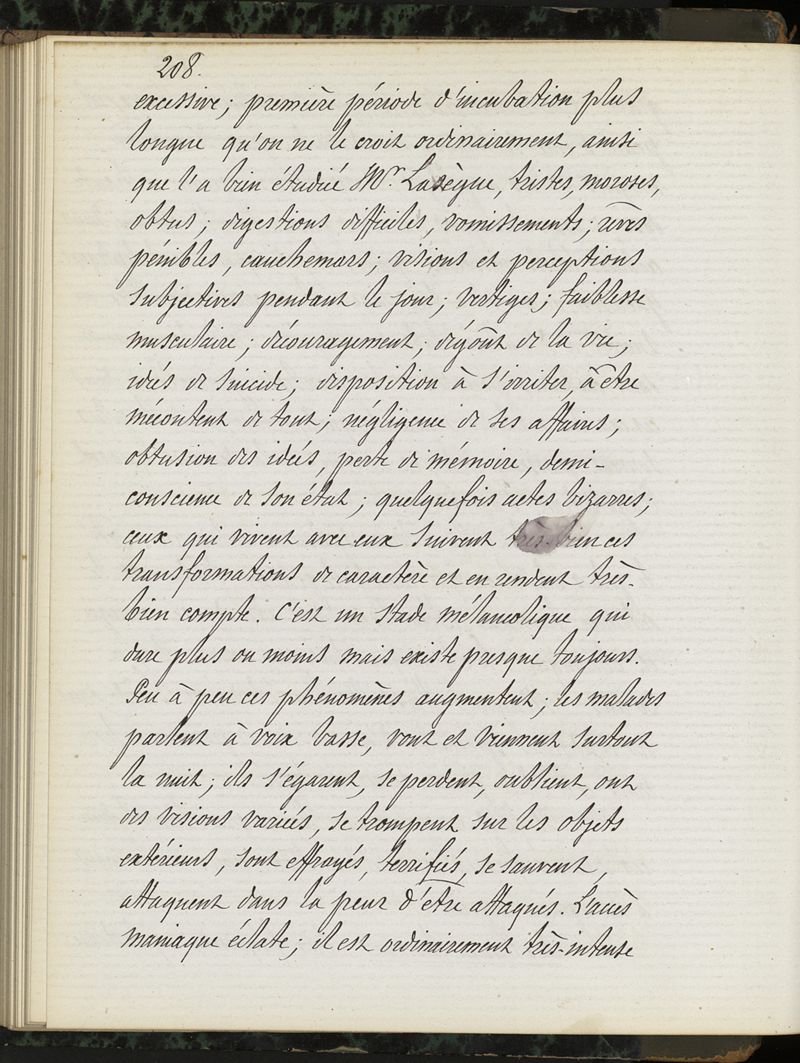 208.
excessive; première période d'incubation plus
longue qu'on ne le croit ordinairement, ainsi
que l'a bien étudiée Mr. Lasègue, tristes, moroses,
obtus; digestions difficiles, vomissements; rêves
pénibles, cauchemars; visions et perceptions
subjectives pendant le jour; vertiges; faiblesse
musculaire; découragement; dégoût de la vie;
idées de suicide; disposition à s'irriter, à être
mécontent de tout; négligence de ses affaires;
obtusion des idées, perte de mémoire, demi-
conscience de son état; quelquefois actes bizarres;
ceux qui vivent avec eux suivent très-bien ces
transformations de caractère et en rendent très-
bien compte. C'est un stade mélancolique qui
dure plus ou moins mais existe presque toujours.
Peu à peu ces phénomènes augmentent; les malades
parlent à voix basse, vont et viennent surtout
la nuit; ils s'égarent, se perdent, oublient, ont
des visions variées, se trompent sur les objets
extérieurs, sont effrayés, terrifiés, se sauvent,
attaquent dans la peur d'être attaqués. L'accès
maniaque éclate; il est ordinairement très-intense